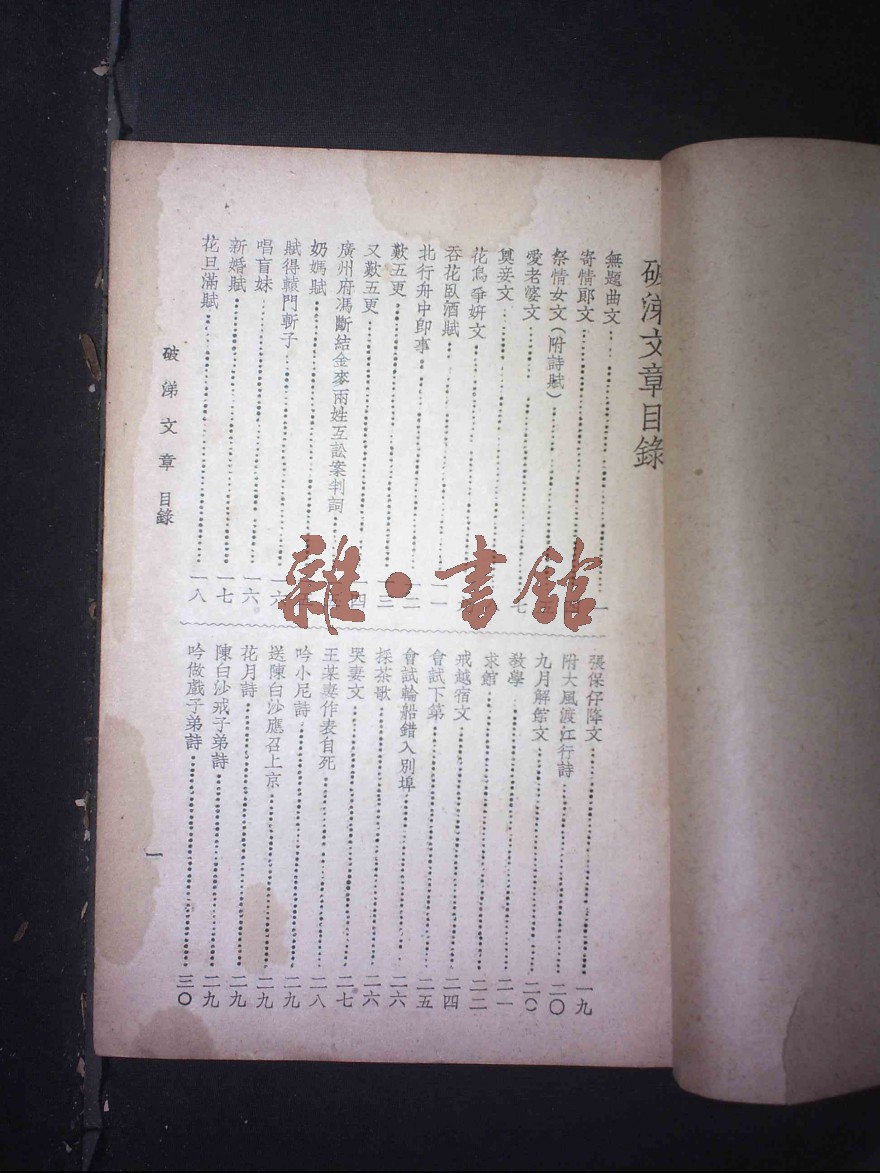 破涕文章目錄
無題曲文 一
寄情郎文
祭情女文(附詩賦)
愛老婆文 七
奠妾文
花鳥爭妍文
吞花臥酒賦 一一
北行舟中卽事 一二
歎五更 一三
又歎五更 一四
廣州府馮斷結金麥兩姓互訟案判詞
奶媽賦
賦得轅門斬子 一六
唱盲妹 一六
新婚賦 一七
花旦滿賦 一八
張保仔降文 一九
附大風渡江行詩 二〇
九月解館文 二〇
敎學 二一
求館 二三
戒越宿文 二四
會試下第 二五
會試輪船錯入別埠 二六
採茶歌 二六
哭妻文 二七
王某妻作表自死 二八
吟小尼詩 二九
送陳白沙應召上京 二九
花月詩 二九
陳白沙戒子弟詩 二九
吟做戲子弟詩 三〇
破涕文章 目錄
一
雜·書館